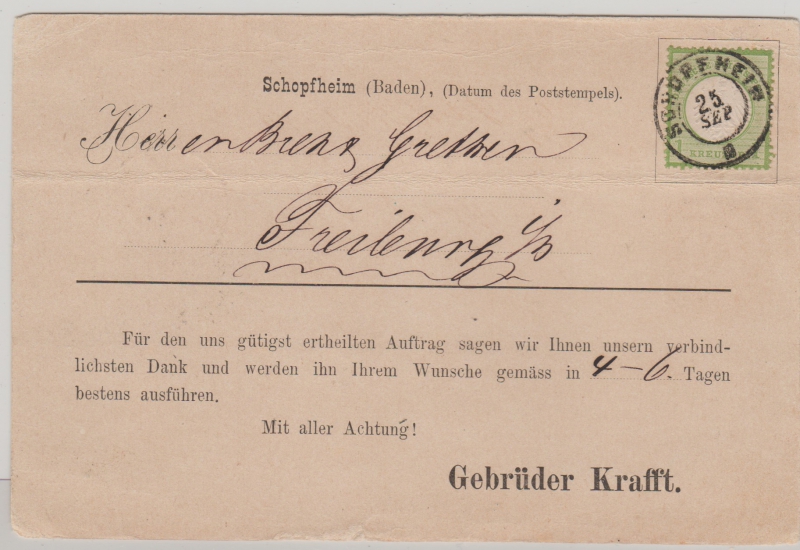 Schopfheim (Baden), (Datum des Poststempels).
SCHOPFHEIM
25
SEP
KREUZER
Herren Grether
Freiburg i/B
Für den uns gütigst ertheilten Auftrag sagen wir Ihnen unsern verbind-
lichsten Dank und werden ihn Ihrem Wunsche gemäss in 4-6. Tagen
bestens ausführen.
Mit aller Achtung!
Gebrüder Krafft.